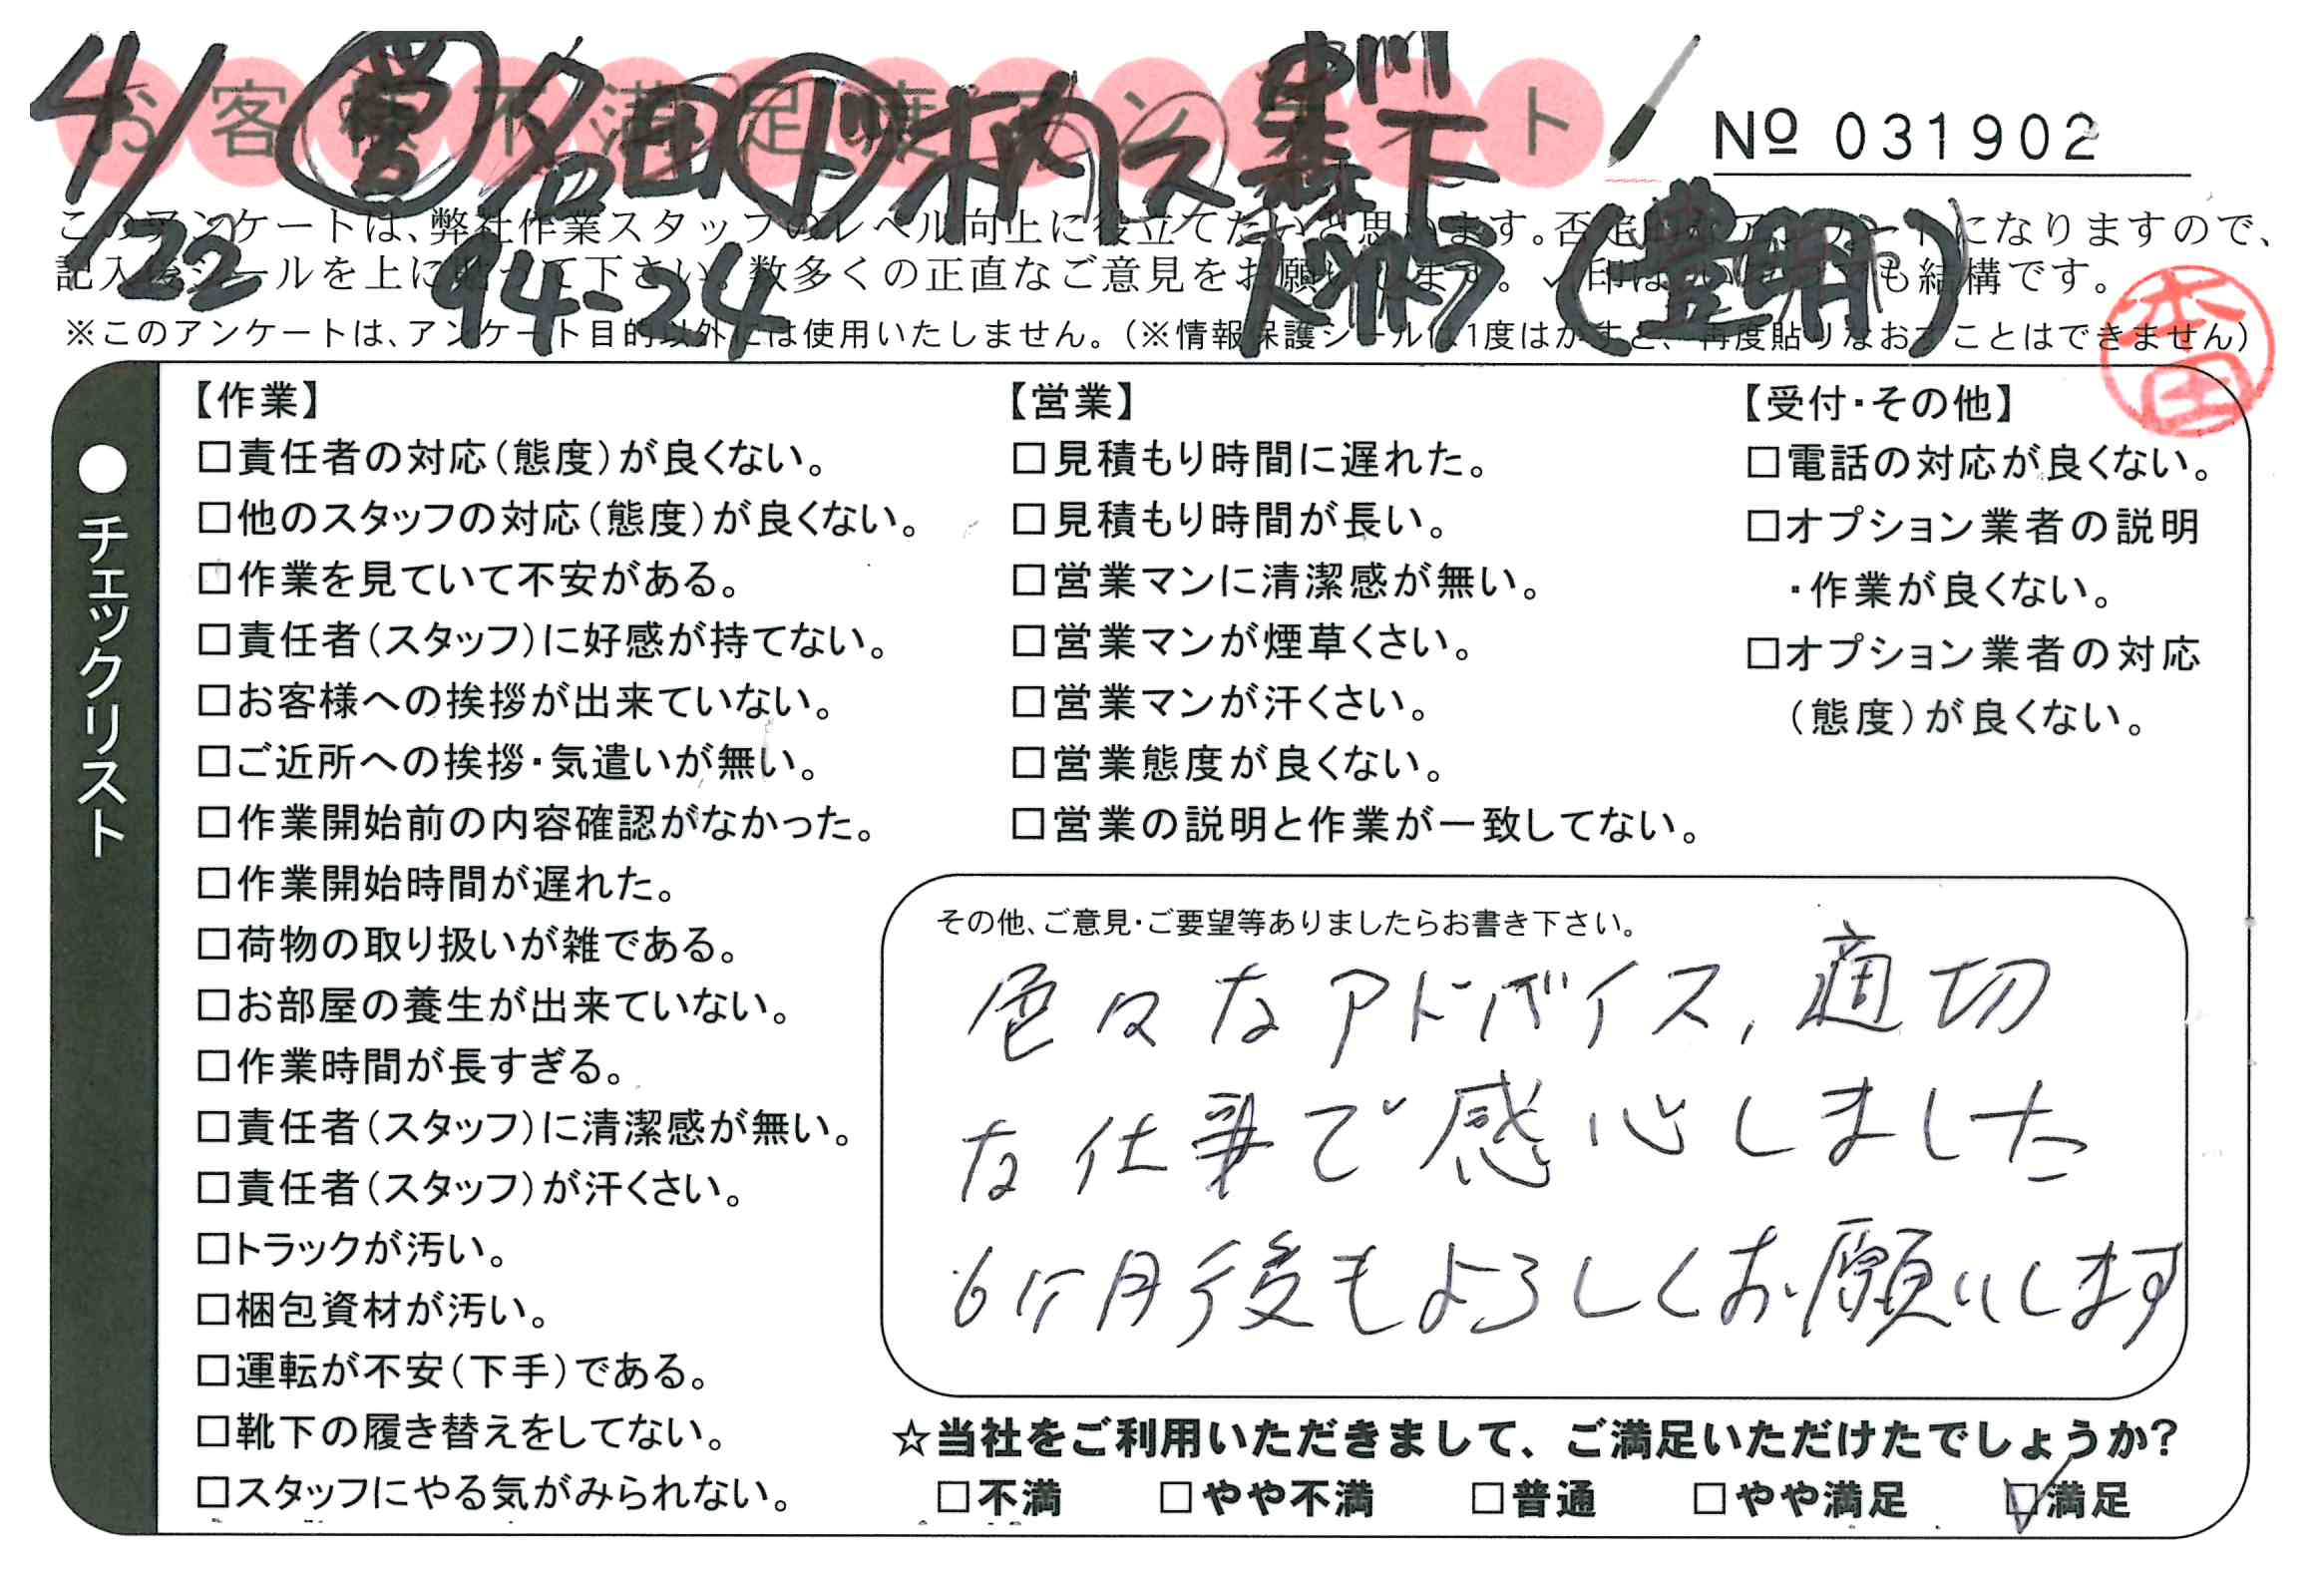 お客様不満足度アンケート
4/22 営 名田 ド 柄ス 森下
№ 031902
94-24 (豊明)
このアンケートは、弊社作業スタッフのレベル向上に役立てたいと思います。
※このアンケートは、アンケート目的以外には使用いたしません。(※情報保護シールは1度はがすと、再度貼りなおすことはできません)
本田
●チェックリスト
【作業】
□責任者の対応(態度)が良くない。
□他のスタッフの対応(態度)が良くない。
□作業を見ていて不安がある。
□責任者(スタッフ)に好感が持てない。
□お客様への挨拶が出来ていない。
□ご近所への挨拶・気遣いが無い。
□作業開始前の内容確認がなかった。
□作業開始時間が遅れた。
□荷物の取り扱いが雑である。
□お部屋の養生が出来ていない。
□作業時間が長すぎる。
□責任者(スタッフ)に清潔感が無い。
□責任者(スタッフ)が汗くさい。
□トラックが汚い。
□梱包資材が汚い。
□運転が不安(下手)である。
□靴下の履き替えをしてない。
□スタッフにやる気がみられない。
【営業】
□見積もり時間に遅れた。
□見積もり時間が長い。
□営業マンに清潔感が無い。
□営業マンが煙草くさい。
□営業マンが汗くさい。
□営業態度が良くない。
□営業の説明と作業が一致してない。
【受付・その他】
□電話の対応が良くない。
□オプション業者の説明
・作業が良くない。
□オプション業者の対応
(態度)が良くない。
その他、ご意見・ご要望等ありましたらお書き下さい。
色々なアドバイス,適切
な仕事で感心しました
6ケ月後もよろしくお願いします
☆当社をご利用いただきまして、ご満足いただけたでしょうか?
□不満 □やや不満 □普通 □やや満足 ☑満足